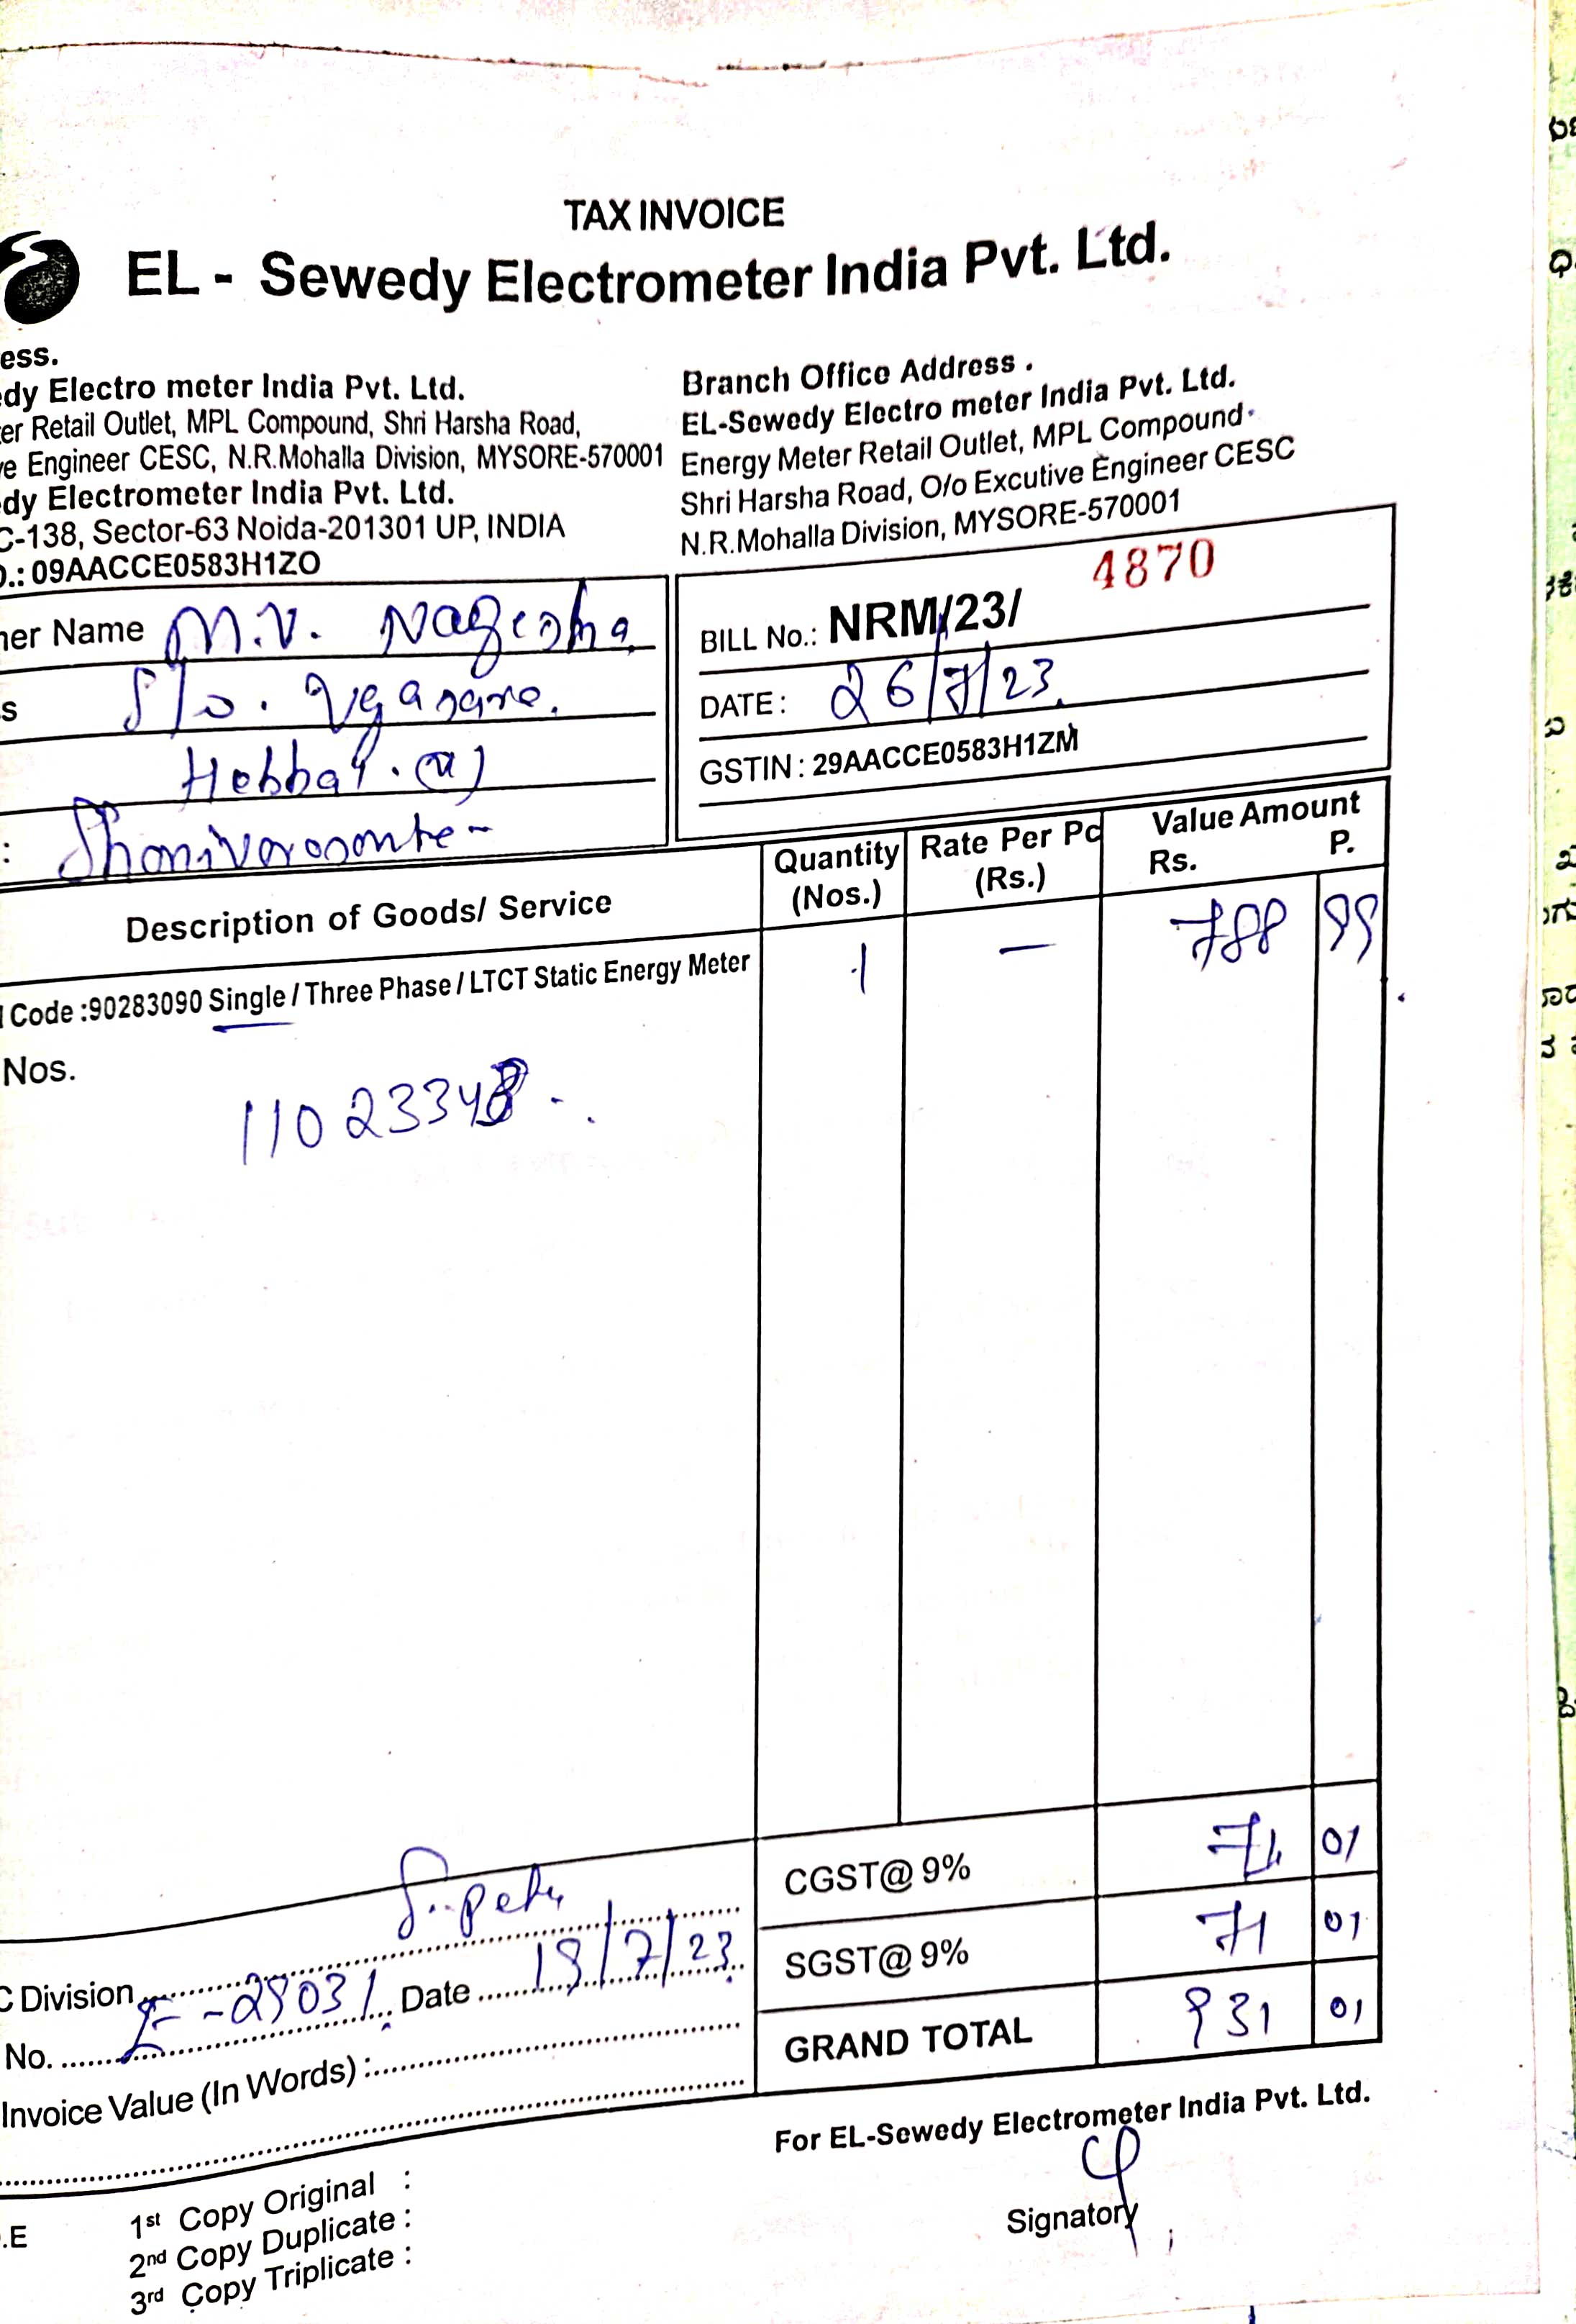 TAX INVOICE
EL - Sewedy Electrometer India Pvt. Ltd.
ess.
dy Electro meter India Pvt. Ltd.
er Retail Outlet, MPL Compound, Shri Harsha Road,
e Engineer CESC, N.R.Mohalla Division, MYSORE-570001
dy Electrometer India Pvt. Ltd.
C-138, Sector-63 Noida-201301 UP, INDIA
.: 09AACCE0583H1ZO
Branch Office Address .
EL-Sewedy Electro meter India Pvt. Ltd.
Energy Meter Retail Outlet, MPL Compound
Shri Harsha Road, O/o Excutive Engineer CESC
N.R.Mohalla Division, MYSORE-570001
er Name M.V. Nagesha
s S/o.
Hebbal.
: Shanivarasante-
BILL No.: NRM/23/ 4870
DATE : 26/7/23
GSTIN : 29AACCE0583H1ZM
Description of Goods/ Service Quantity (Nos.) Rate Per Pc (Rs.) Value Amount Rs. P.
Code :90283090 Single / Three Phase / LTCT Static Energy Meter 1 — 788 99
Nos.
CGST@ 9% 71 01
SGST@ 9% 71 01
GRAND TOTAL 931 01
C Division
No. Date
Invoice Value (In Words) :
For EL-Sewedy Electrometer India Pvt. Ltd.
Signatory
.E
1st Copy Original :
2nd Copy Duplicate :
3rd Copy Triplicate :